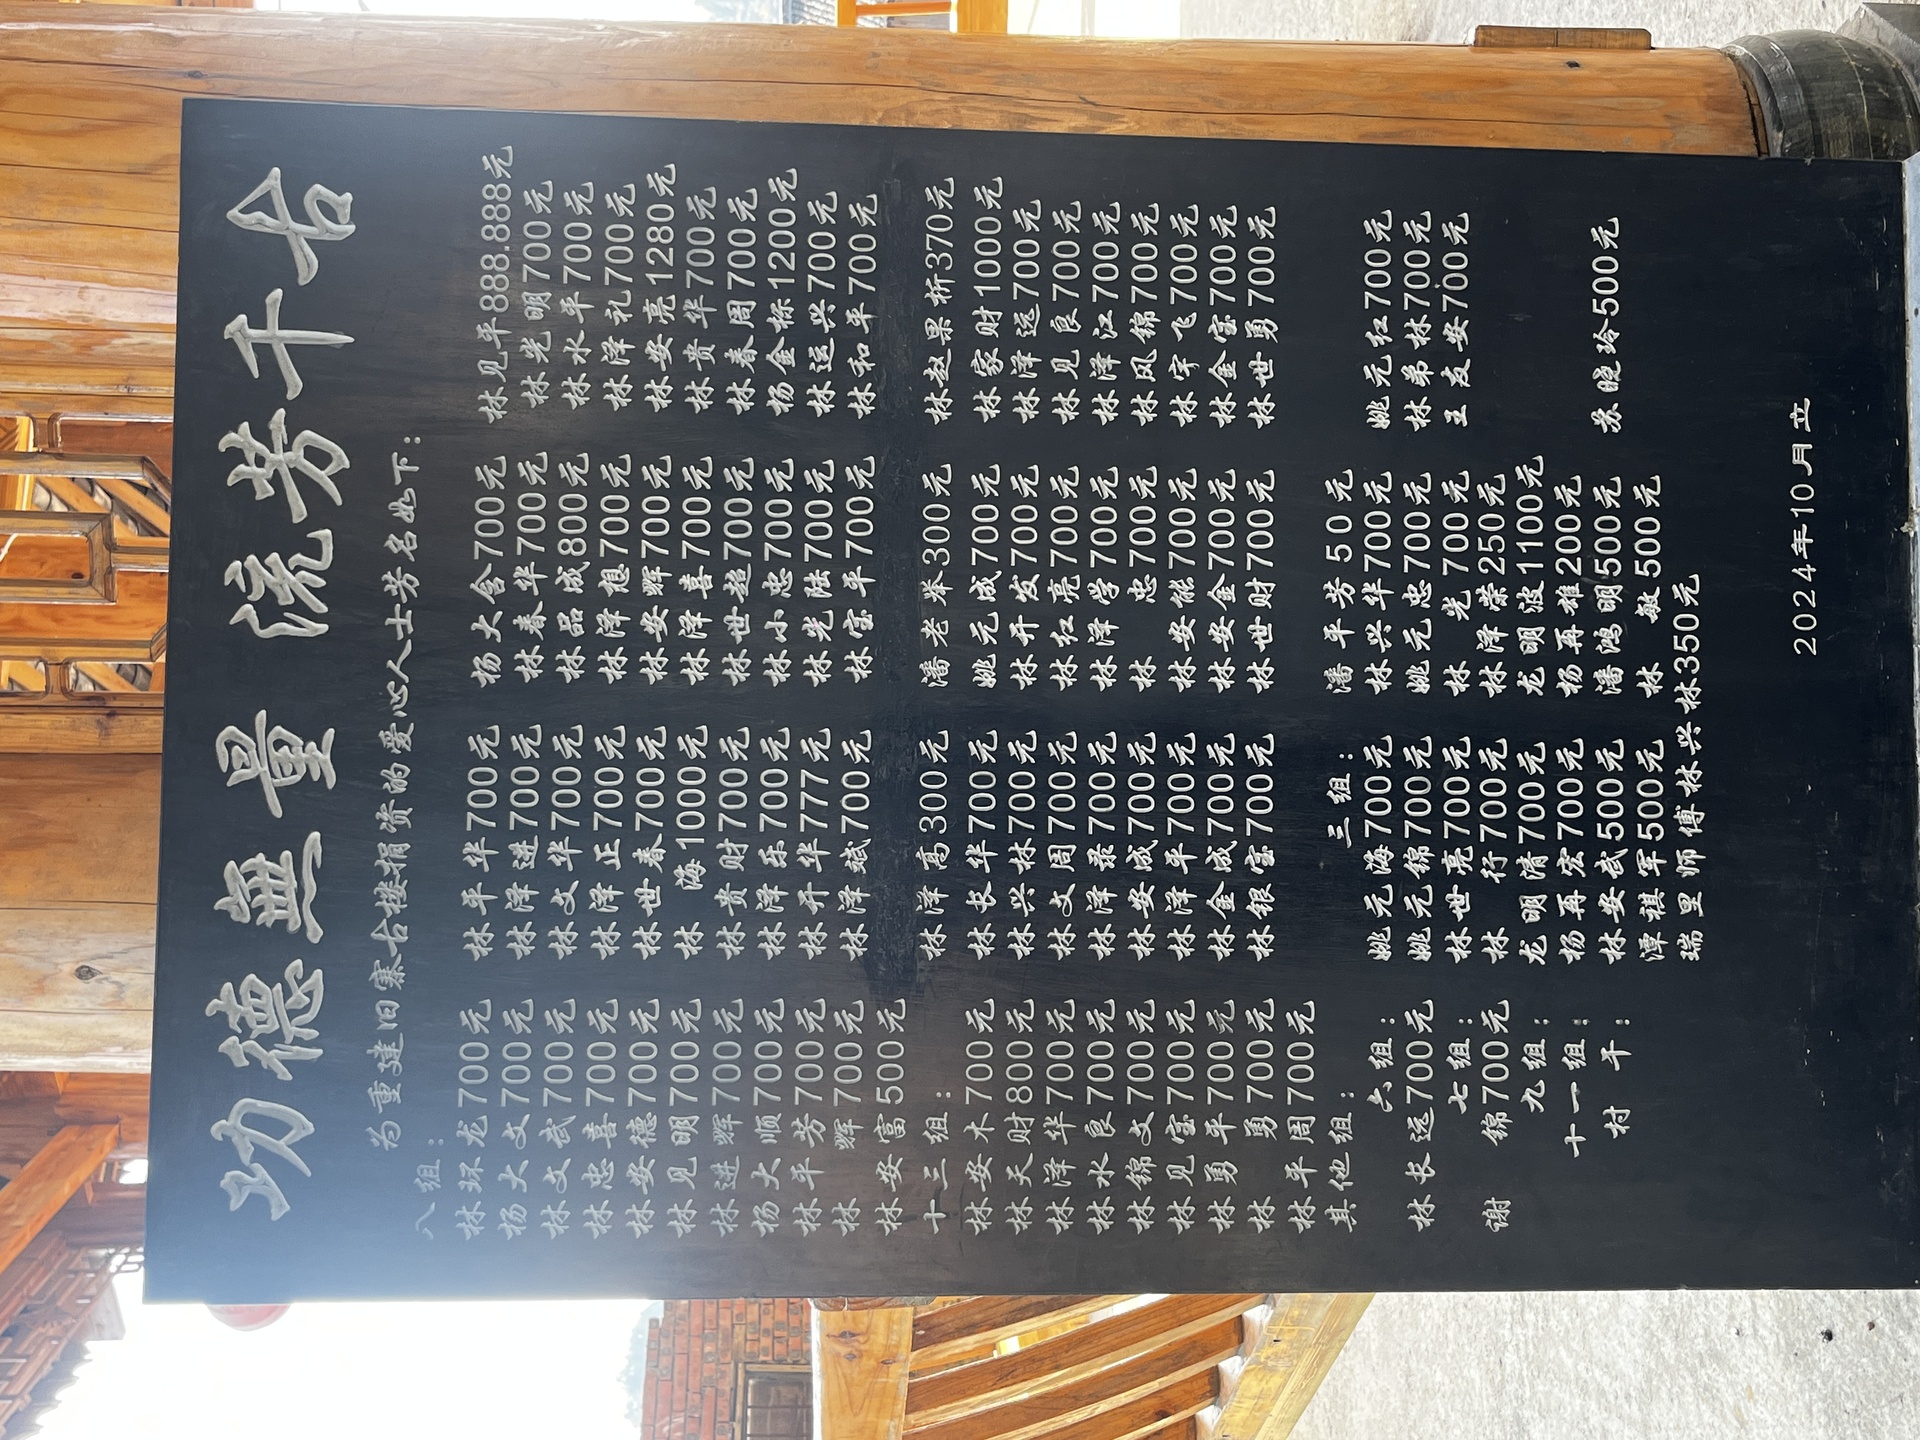 功德無量 流芳千古
为重建旧寨古楼捐资的爱心人士芳名如下：
八组：
林环龙700元 林平华700元 杨大含700元 林见平888.888元
杨大文700元 林泽进700元 林春华700元 林光明700元
林文武700元 林文华700元 林品成800元 林水平700元
林忠喜700元 林泽正700元 林泽想700元 林泽礼700元
林安德700元 林世春700元 林安辉700元 林安亮1280元
林见明700元 林海1000元 林泽喜700元 林贵华700元
林进辉700元 林贵财700元 林世超700元 林春周700元
杨大顺700元 林泽乐700元 林小忠700元 杨金标1200元
林平芳700元 林开华777元 林光陆700元 林运兴700元
林辉700元 林泽斌700元 林宝平700元 林和平700元
林安富500元
十三组： 林泽高300元 潘老举300元 林赵果析370元
林安木700元 林长华700元 姚元成700元 林家财1000元
林天财800元 林兴林700元 林开发700元 林泽远700元
林泽华700元 林文周700元 林红亮700元 林见良700元
林水良700元 林泽录700元 林泽学700元 林泽江700元
林锦文700元 林安成700元 林忠700元 林凤锦700元
林见宝700元 林泽平700元 林安能700元 林宇飞700元
林勇平700元 林金成700元 林安金700元 林金宝700元
林勇700元 林银宝700元 林世财700元 林世勇700元
林平周700元
其他组： 三组： 潘平芳50元
六组： 姚元海700元 林兴华700元 姚元红700元
林长远700元 姚元锦700元 姚元忠700元 林弟林700元
七组： 林世亮700元 林光700元 王友安700元
谢锦700元 林行700元 林泽荣250元
九组： 龙明清700元 龙明波1100元
十一组： 杨再宏700元 杨再雄200元
村干： 林安武500元 潘鸿明500元 苏晓玲500元
潭祺军500元 林敏500元
瑞里师傅林兴林350元
2024年10月立